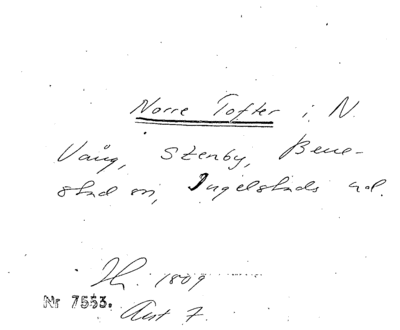 Norre Tofter i N
Vång, Stenby, Bene-
stad sn, Ingelstads hd.
1809
Nr 7553.
Akt 7.